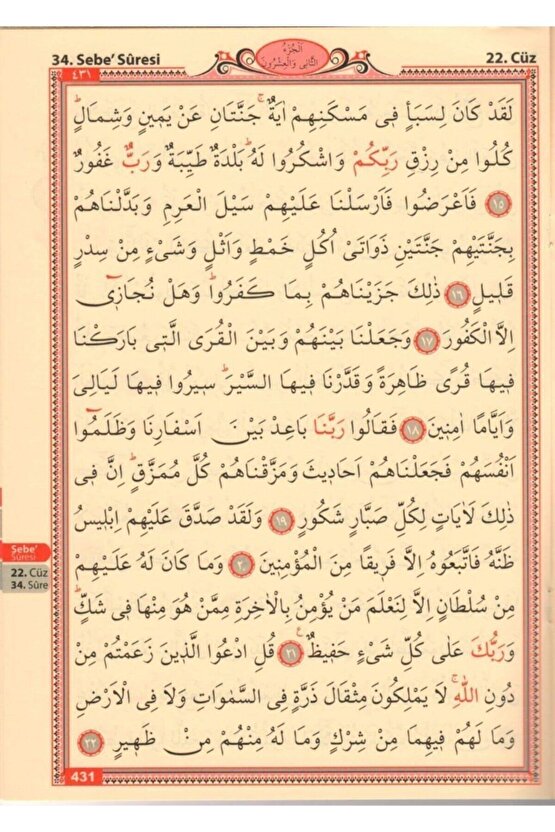 34. Sebe’ Sûresi
اَلْجُزْءُ
الثَّانِى وَالْعِشْرُونَ
22. Cüz
٤٣١
لَقَدْ كَانَ لِسَبَأٍ فِى مَسْكَنِهِمْ اٰيَةٌۚ جَنَّتَانِ عَنْ يَمِينٍ وَشِمَالٍۜ
كُلُوا مِنْ رِزْقِ رَبِّكُمْ وَاشْكُرُوا لَهُۜ بَلْدَةٌ طَيِّبَةٌ وَرَبٌّ غَفُورٌ
﴿١٥﴾ فَاَعْرَضُوا فَاَرْسَلْنَا عَلَيْهِمْ سَيْلَ الْعَرِمِ وَبَدَّلْنَاهُمْ
بِجَنَّتَيْهِمْ جَنَّتَيْنِ ذَوَاتَىْ اُكُلٍ خَمْطٍ وَاَثْلٍ وَشَىْءٍ مِنْ سِدْرٍ
قَلِيلٍ ﴿١٦﴾ ذٰلِكَ جَزَيْنَاهُمْ بِمَا كَفَرُواۜ وَهَلْ نُجَازِٓى
اِلَّا الْكَفُورَ ﴿١٧﴾ وَجَعَلْنَا بَيْنَهُمْ وَبَيْنَ الْقُرَى الَّتِى بَارَكْنَا
فِيهَا قُرًى ظَاهِرَةً وَقَدَّرْنَا فِيهَا السَّيْرَۜ سِيرُوا فِيهَا لَيَالِىَ
وَاَيَّامًا اٰمِنِينَ ﴿١٨﴾ فَقَالُوا رَبَّنَا بَاعِدْ بَيْنَ اَسْفَارِنَا وَظَلَمُٓوا
اَنْفُسَهُمْ فَجَعَلْنَاهُمْ اَحَادِيثَ وَمَزَّقْنَاهُمْ كُلَّ مُمَزَّقٍۜ اِنَّ فِى
ذٰلِكَ لَاٰيَاتٍ لِكُلِّ صَبَّارٍ شَكُورٍ ﴿١٩﴾ وَلَقَدْ صَدَّقَ عَلَيْهِمْ اِبْلِيسُ
ظَنَّهُ فَاتَّبَعُوهُ اِلَّا فَرِيقًا مِنَ الْمُؤْمِنِينَ ﴿٢٠﴾ وَمَا كَانَ لَهُ عَلَيْهِمْ
مِنْ سُلْطَانٍ اِلَّا لِنَعْلَمَ مَنْ يُؤْمِنُ بِالْاٰخِرَةِ مِمَّنْ هُوَ مِنْهَا فِى شَكٍّۜ
وَرَبُّكَ عَلٰى كُلِّ شَىْءٍ حَفِيظٌ۟ ﴿٢١﴾ قُلِ ادْعُوا الَّذِينَ زَعَمْتُمْ مِنْ
دُونِ اللّٰهِۚ لَا يَمْلِكُونَ مِثْقَالَ ذَرَّةٍ فِى السَّمٰوَاتِ وَلَا فِى الْاَرْضِ
وَمَا لَهُمْ فِيهِمَا مِنْ شِرْكٍ وَمَا لَهُ مِنْهُمْ مِنْ ظَهِيرٍ ﴿٢٢﴾
431
Sebe’
Sûresi
22. Cüz
34. Sûre